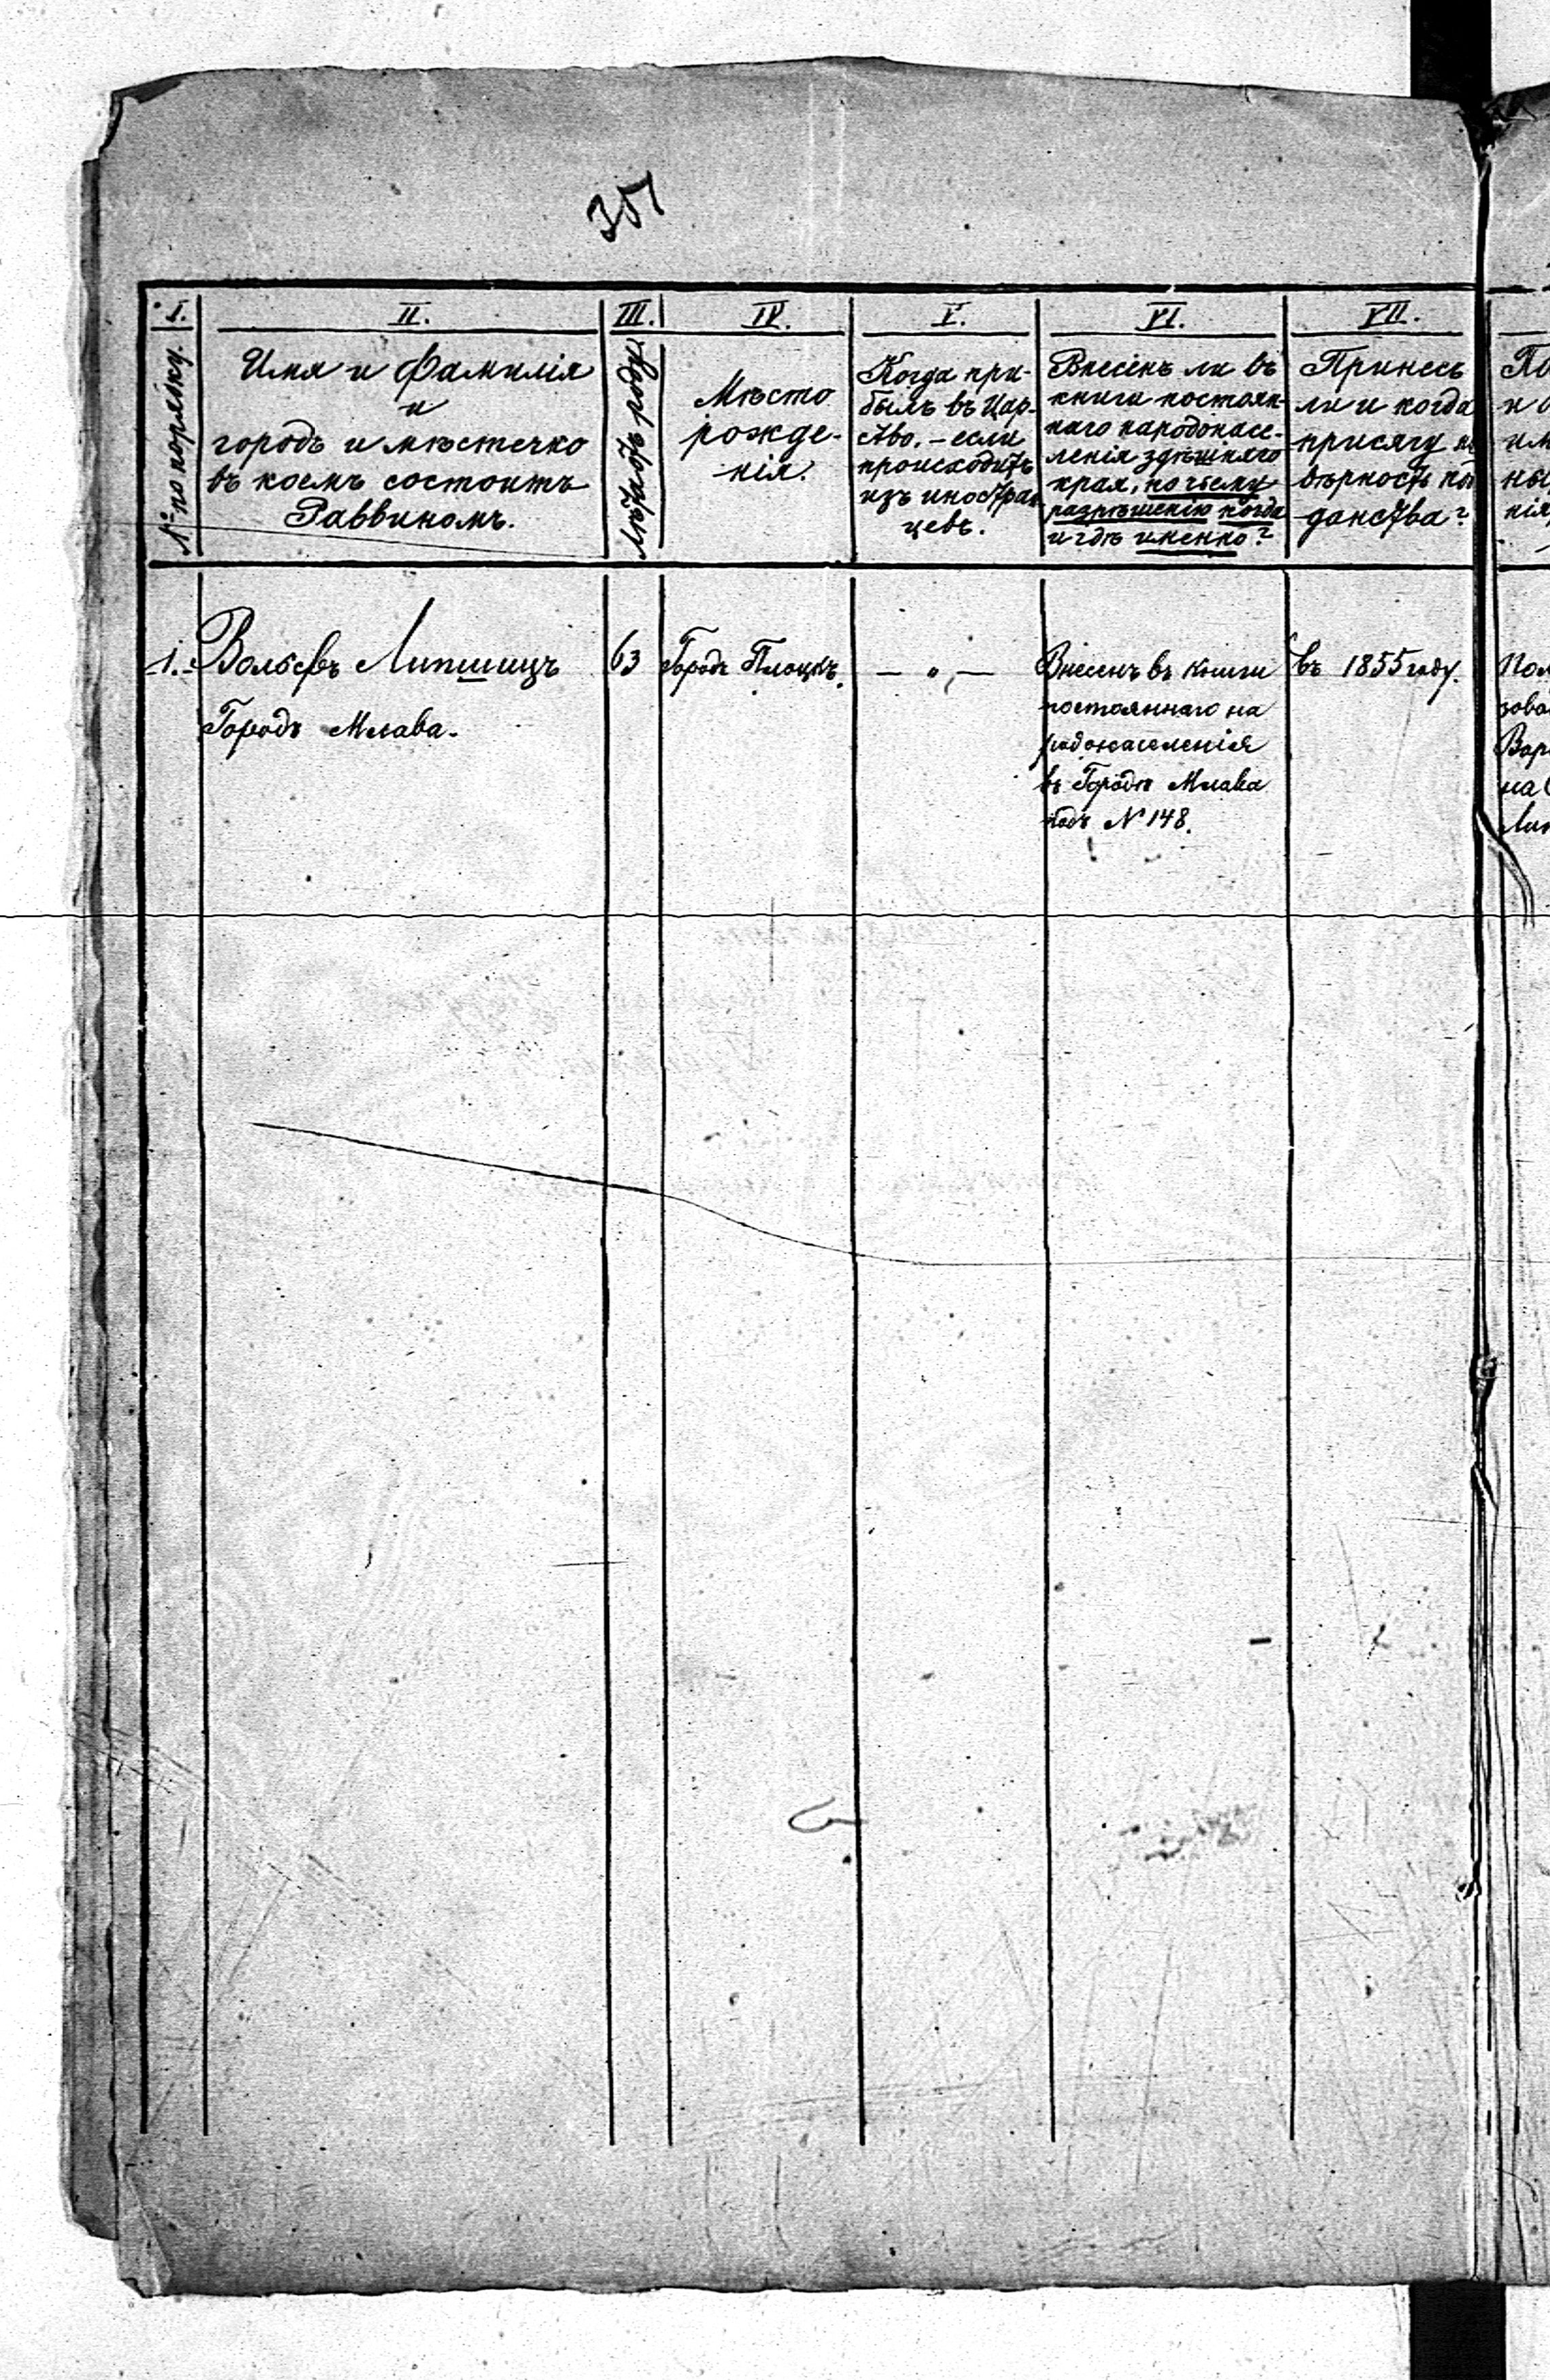 351
I.
№ по порядку.
II.
Имя и Фамилія
и
городъ и мѣстечко
въ коемъ состоитъ
Раввиномъ.
III.
Лѣта отъ роду
IV.
Мѣсто
рожде-
нія.
V.
Когда при-
былъ въ Цар-
ство, - если
происходитъ
изъ иностран-
цевъ.
VI.
Внесенъ ли въ
книги постоян-
наго народонасе-
ленія здѣшняго
края, по чьему
разрѣшенію когда
и гдѣ именно?
VII.
Принесъ
ли и когда
присягу на
вѣрность под
данства?
1.
Вольфъ Липшицъ
Городъ Млава.
63
Городъ Плоцкъ.
— „ —
Внесенъ въ книги
постояннаго на
родонаселенія
въ Городѣ Млава
подъ N 148.
въ 1855 году.